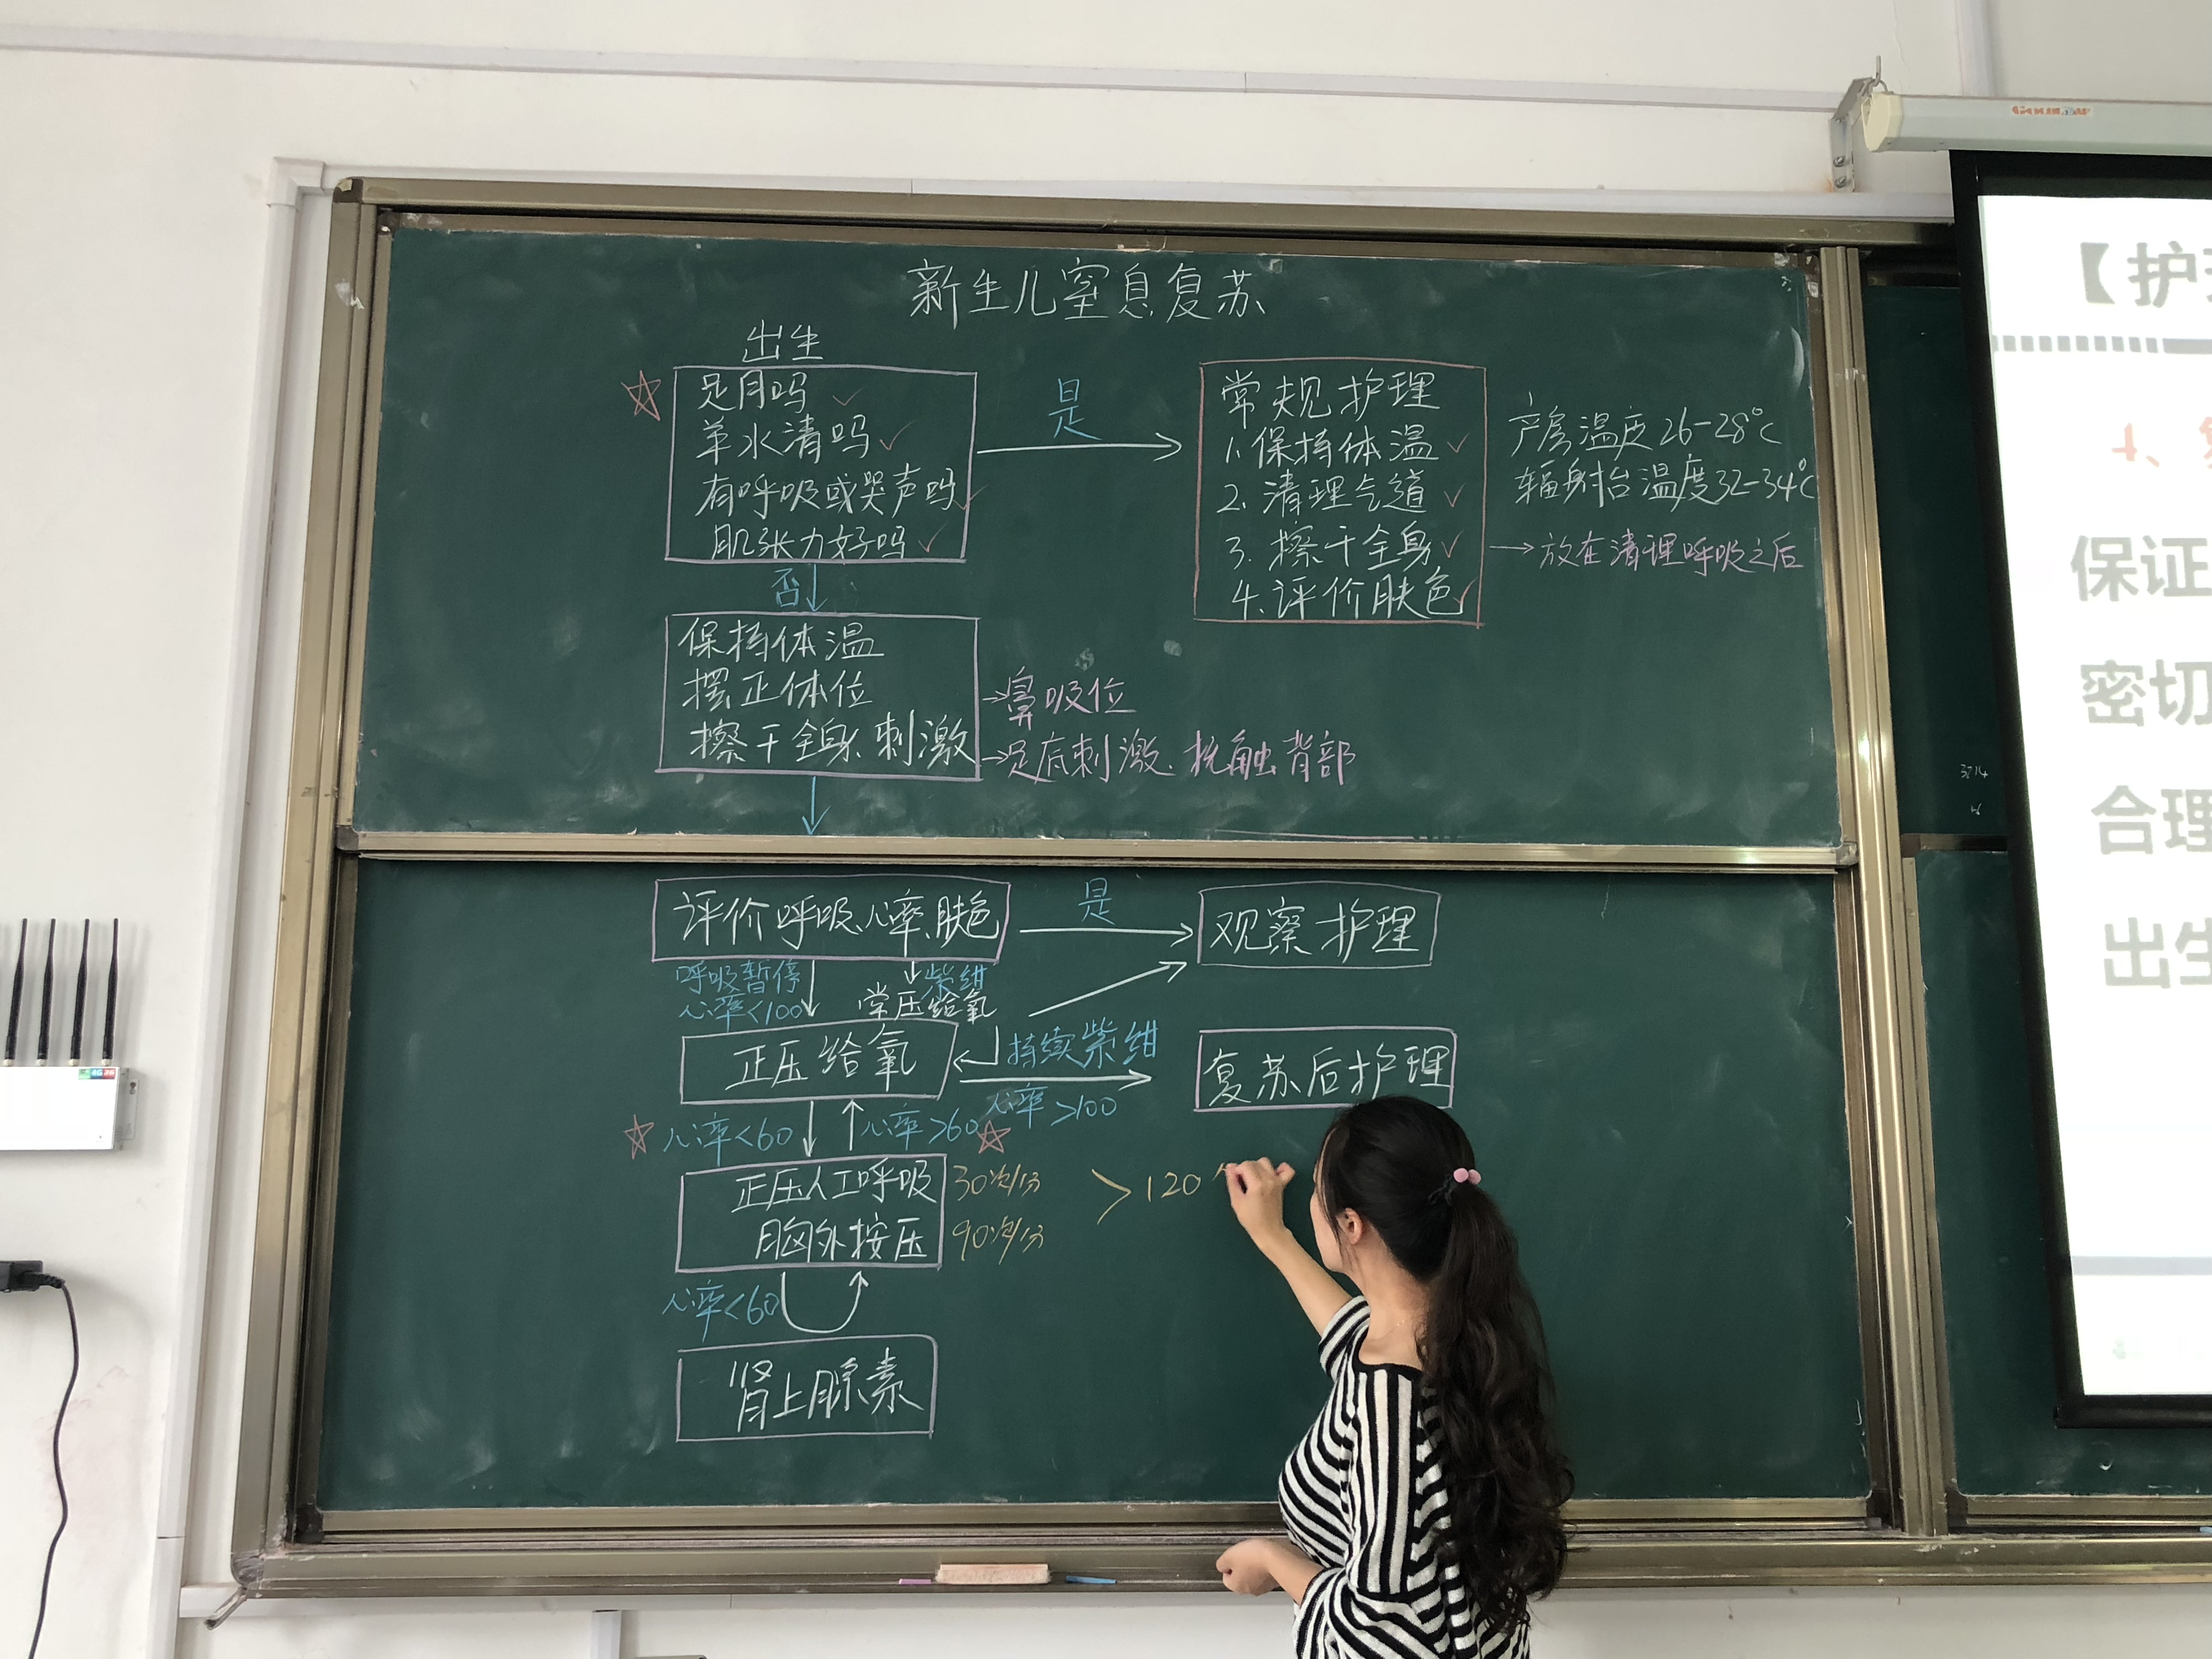 新生儿窒息复苏
出生
足月吗
羊水清吗
有呼吸或哭声吗
肌张力好吗
是
常规护理
1.保持体温
2.清理气道
3.擦干全身
4.评价肤色
产房温度26-28℃
辐射台温度32-34℃
→放在清理呼吸之后
否
保持体温
摆正体位
擦干全身、刺激
→鼻吸位
→足底刺激、抚触背部
评价呼吸、心率、肤色
是
观察护理
呼吸暂停
心率<100
紫绀
常压给氧
正压给氧
持续紫绀
心率>100
复苏后护理
心率<60
心率>60
正压人工呼吸
30次/分
胸外按压
90次/分
>120
心率<60
肾上腺素
【护
保证
密切
合理
出生